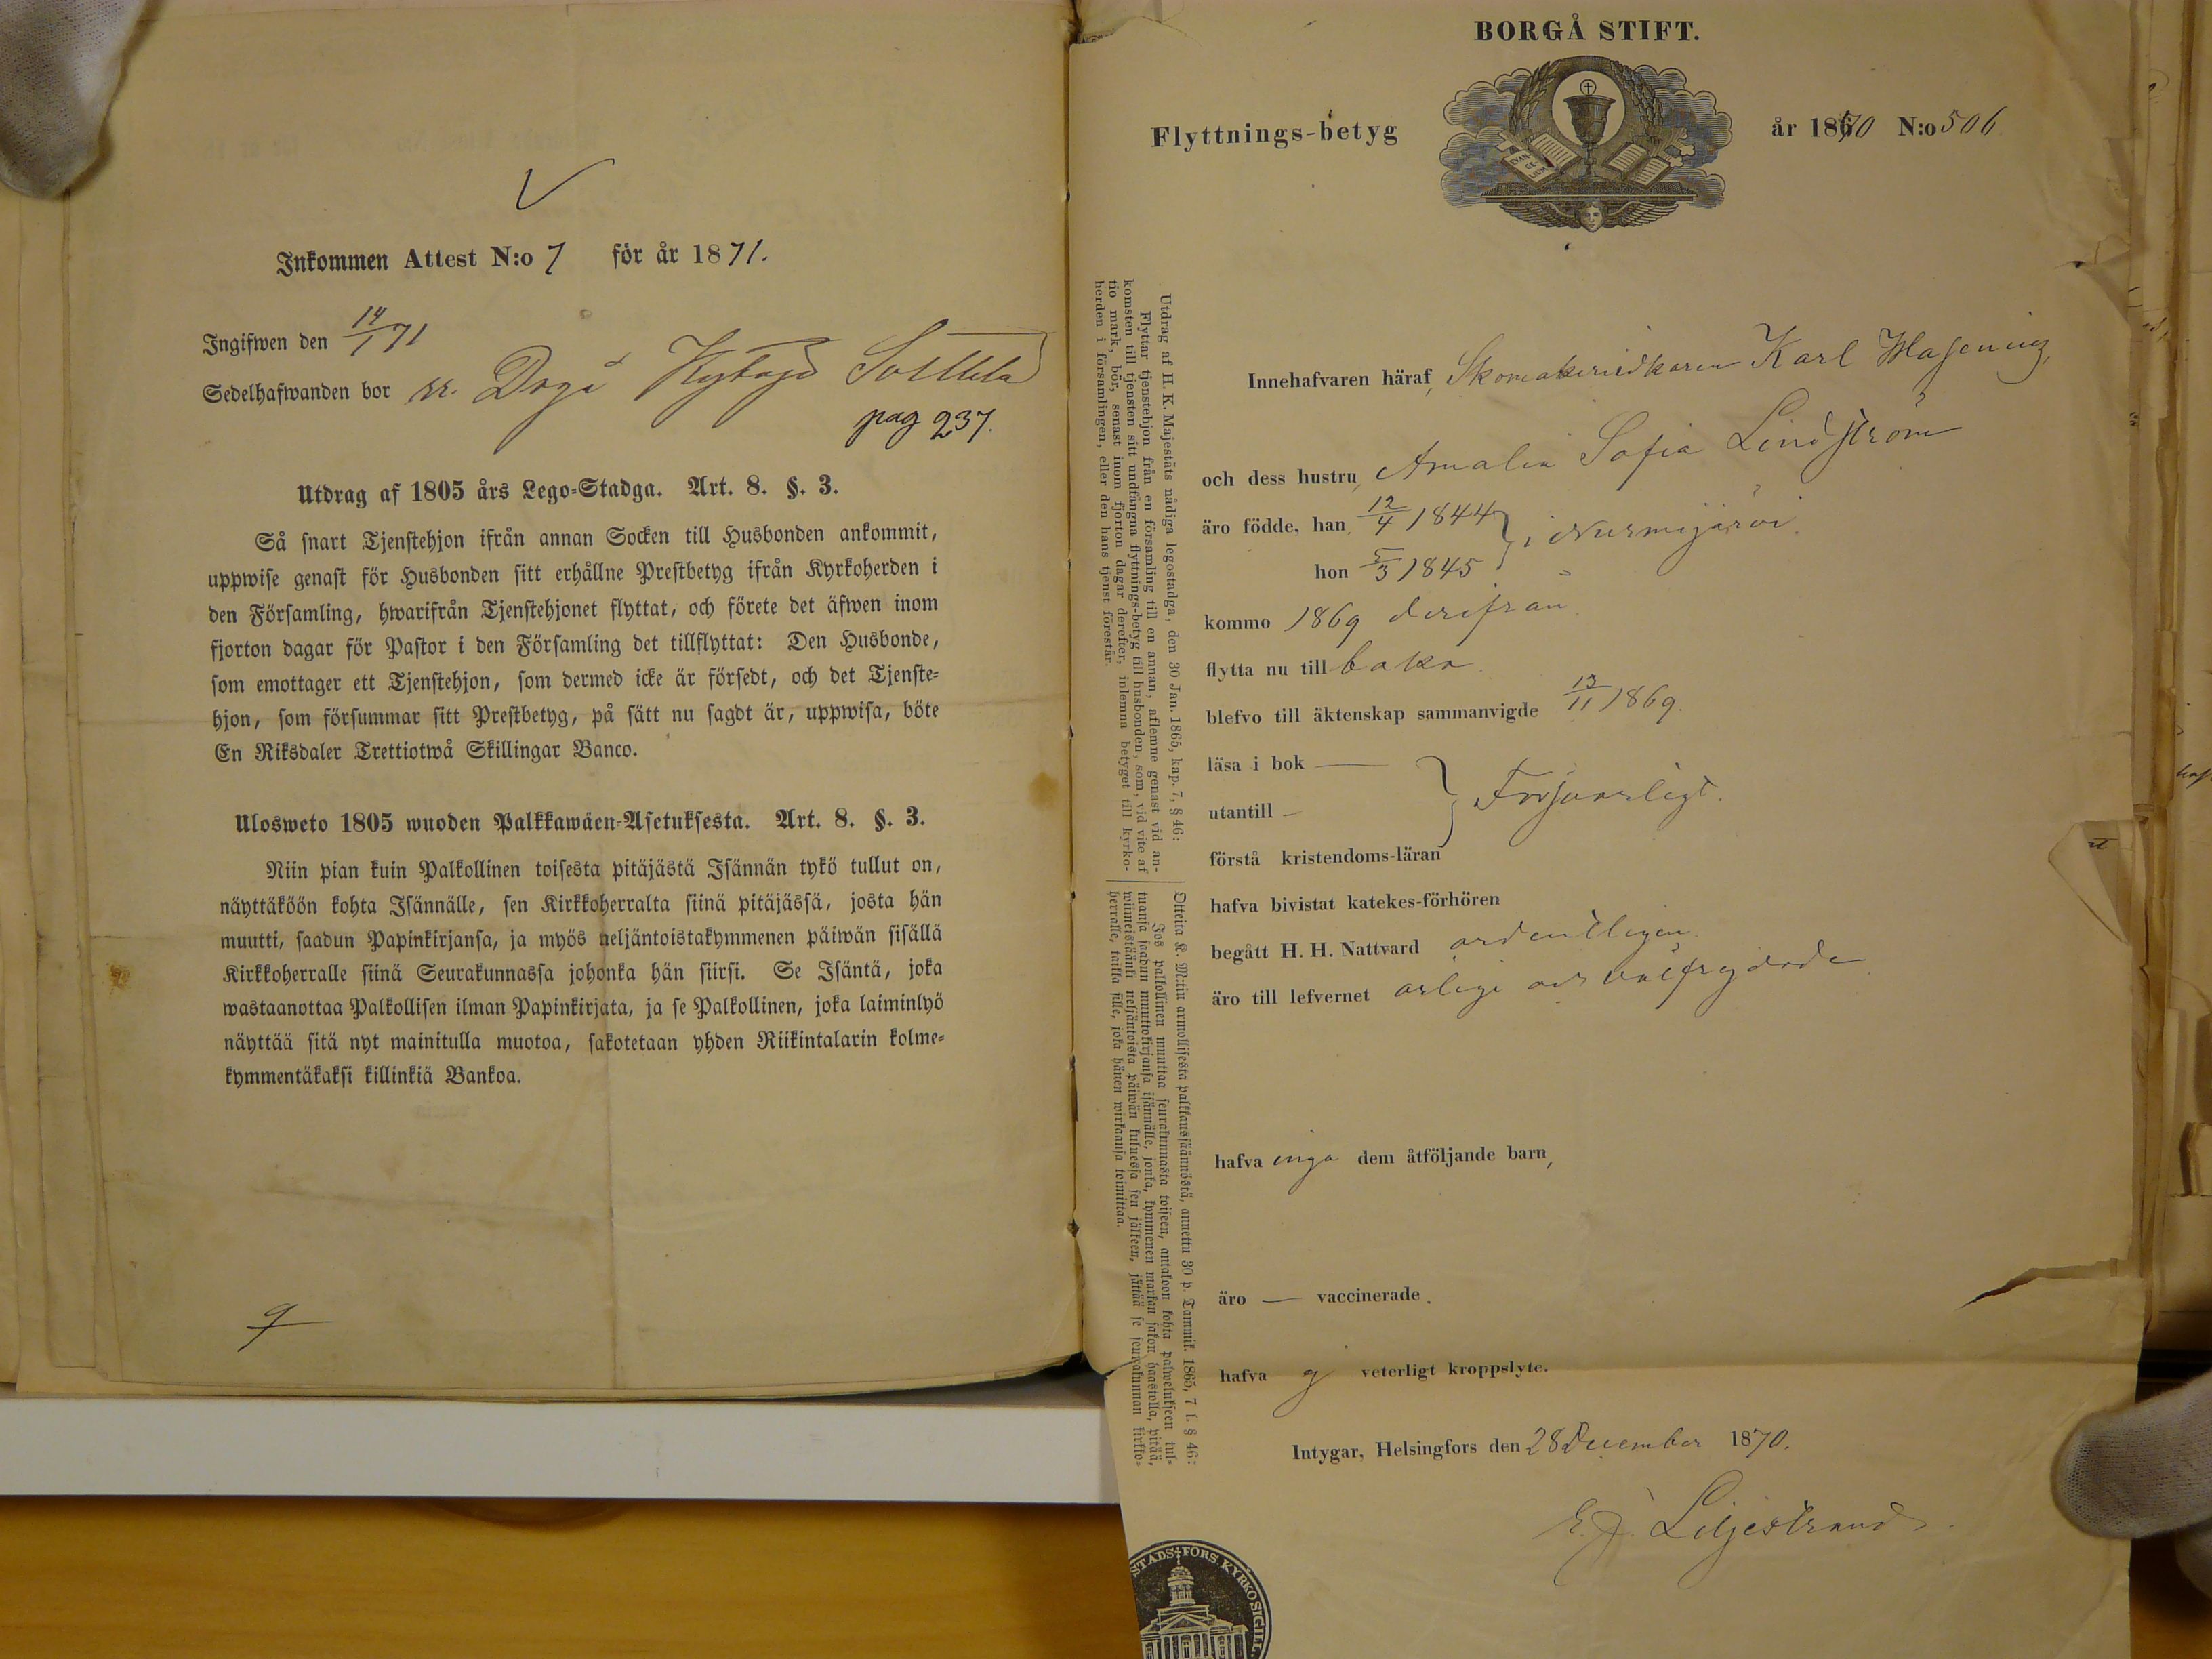 Inkommen Attest N:o 7 för år 1871.
Ingifwen den 14/1 71
Sedelhafwanden bor
pag 237.
Utdrag af 1805 års Lego-Stadga. Art. 8. §. 3.
Så snart Tjenstehjon ifrån annan Socken till Husbonden ankommit,
uppwise genast för Husbonden sitt erhållne Prestbetyg ifrån Kyrkoherden i
den Församling, hwarifrån Tjenstehjonet flyttat, och förete det äfwen inom
fjorton dagar för Pastor i den Församling det tillflyttat: Den Husbonde,
som emottager ett Tjenstehjon, som dermed icke är försedt, och det Tjenste-
hjon, som försummar sitt Prestbetyg, på sätt nu sagdt är, uppwisa, böte
En Riksdaler Trettiotwå Skillingar Banco.
Ulosweto 1805 wuoden Palkkawäen-Asetuksesta. Art. 8. §. 3.
Niin pian kuin Palkollinen toisesta pitäjästä Isännän tykö tullut on,
näyttäköön kohta Isännälle, sen Kirkkoherralta siinä pitäjässä, josta hän
muutti, saadun Papinkirjansa, ja myös neljäntoistakymmenen päiwän sisällä
Kirkkoherralle siinä Seurakunnassa johonka hän siirsi. Se Isäntä, joka
wastaanottaa Palkollisen ilman Papinkirjata, ja se Palkollinen, joka laiminlyö
näyttää sitä nyt mainitulla muotoa, sakotetaan yhden Riikintalarin kolme-
kymmentäkaksi killinkiä Bankoa.
BORGÅ STIFT.
EVAN-
GE-
LIUM
Flyttnings-betyg
år 1870 N:o 506
Utdrag af H. K. Majestäts nådiga legostadga, den 30 Jan. 1865, kap. 7, § 46:
Flyttar tjenstehjon från en församling till en annan, aflemne genast vid an-
komsten till tjensten sitt undfångna flyttnings-betyg till husbonden, som, vid vite af
tio mark, bör, senast inom fjorton dagar derefter, inlemna betyget till kyrko-
herden i församlingen, eller den hans tjenst förestår.
Otteita K. M:tin armollisesta palkkaussäännöstä, annettu 30 p. Tammik. 1865, 7 l. § 46:
Jos palkollinen muuttaa seurakunnasta toiseen, antakoon kohta palwelukseen tul-
tuansa saadun muuttokirjansa isännälle, jonka, kymmenen markan sakon haastolla, pitää,
wiimeistäänki neljäntoista päiwän kuluessa sen jälkeen, jättää se seurakunnan kirkko-
herralle, taikka sille, joka hänen wirkaansa toimittaa.
Innehafvaren häraf, Karl
och dess hustru, Amalia Sofia Lindström
äro födde, han 12/4 1844 } i Nurmijärvi.
hon 5/3 1845
kommo 1869 derifrån
flytta nu till baka
blefvo till äktenskap sammanvigde 13/11 1869.
läsa i bok —
utantill — } Försvarligt.
förstå kristendoms-läran
hafva bivistat katekes-förhören
begått H. H. Nattvard ordentligen
äro till lefvernet ärlige och välfrejdade
hafva inga dem åtföljande barn,
äro — vaccinerade.
hafva ej veterligt kroppslyte.
Intygar, Helsingfors den 28 December 1870.
Liljestrand
STADS FÖRS. KYRKO SIGILL